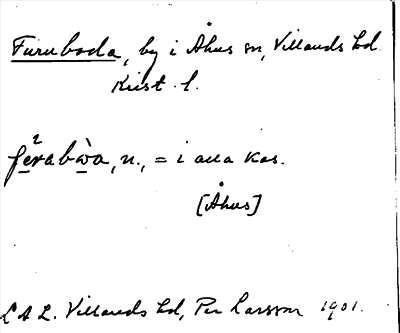 Furuboda, by i Åhus sn, Villands hd
Krist. l.
fè²rabẁa, n., = i alla kas.
[Åhus]
L A L. Villands hd, Per Larsson 1901.